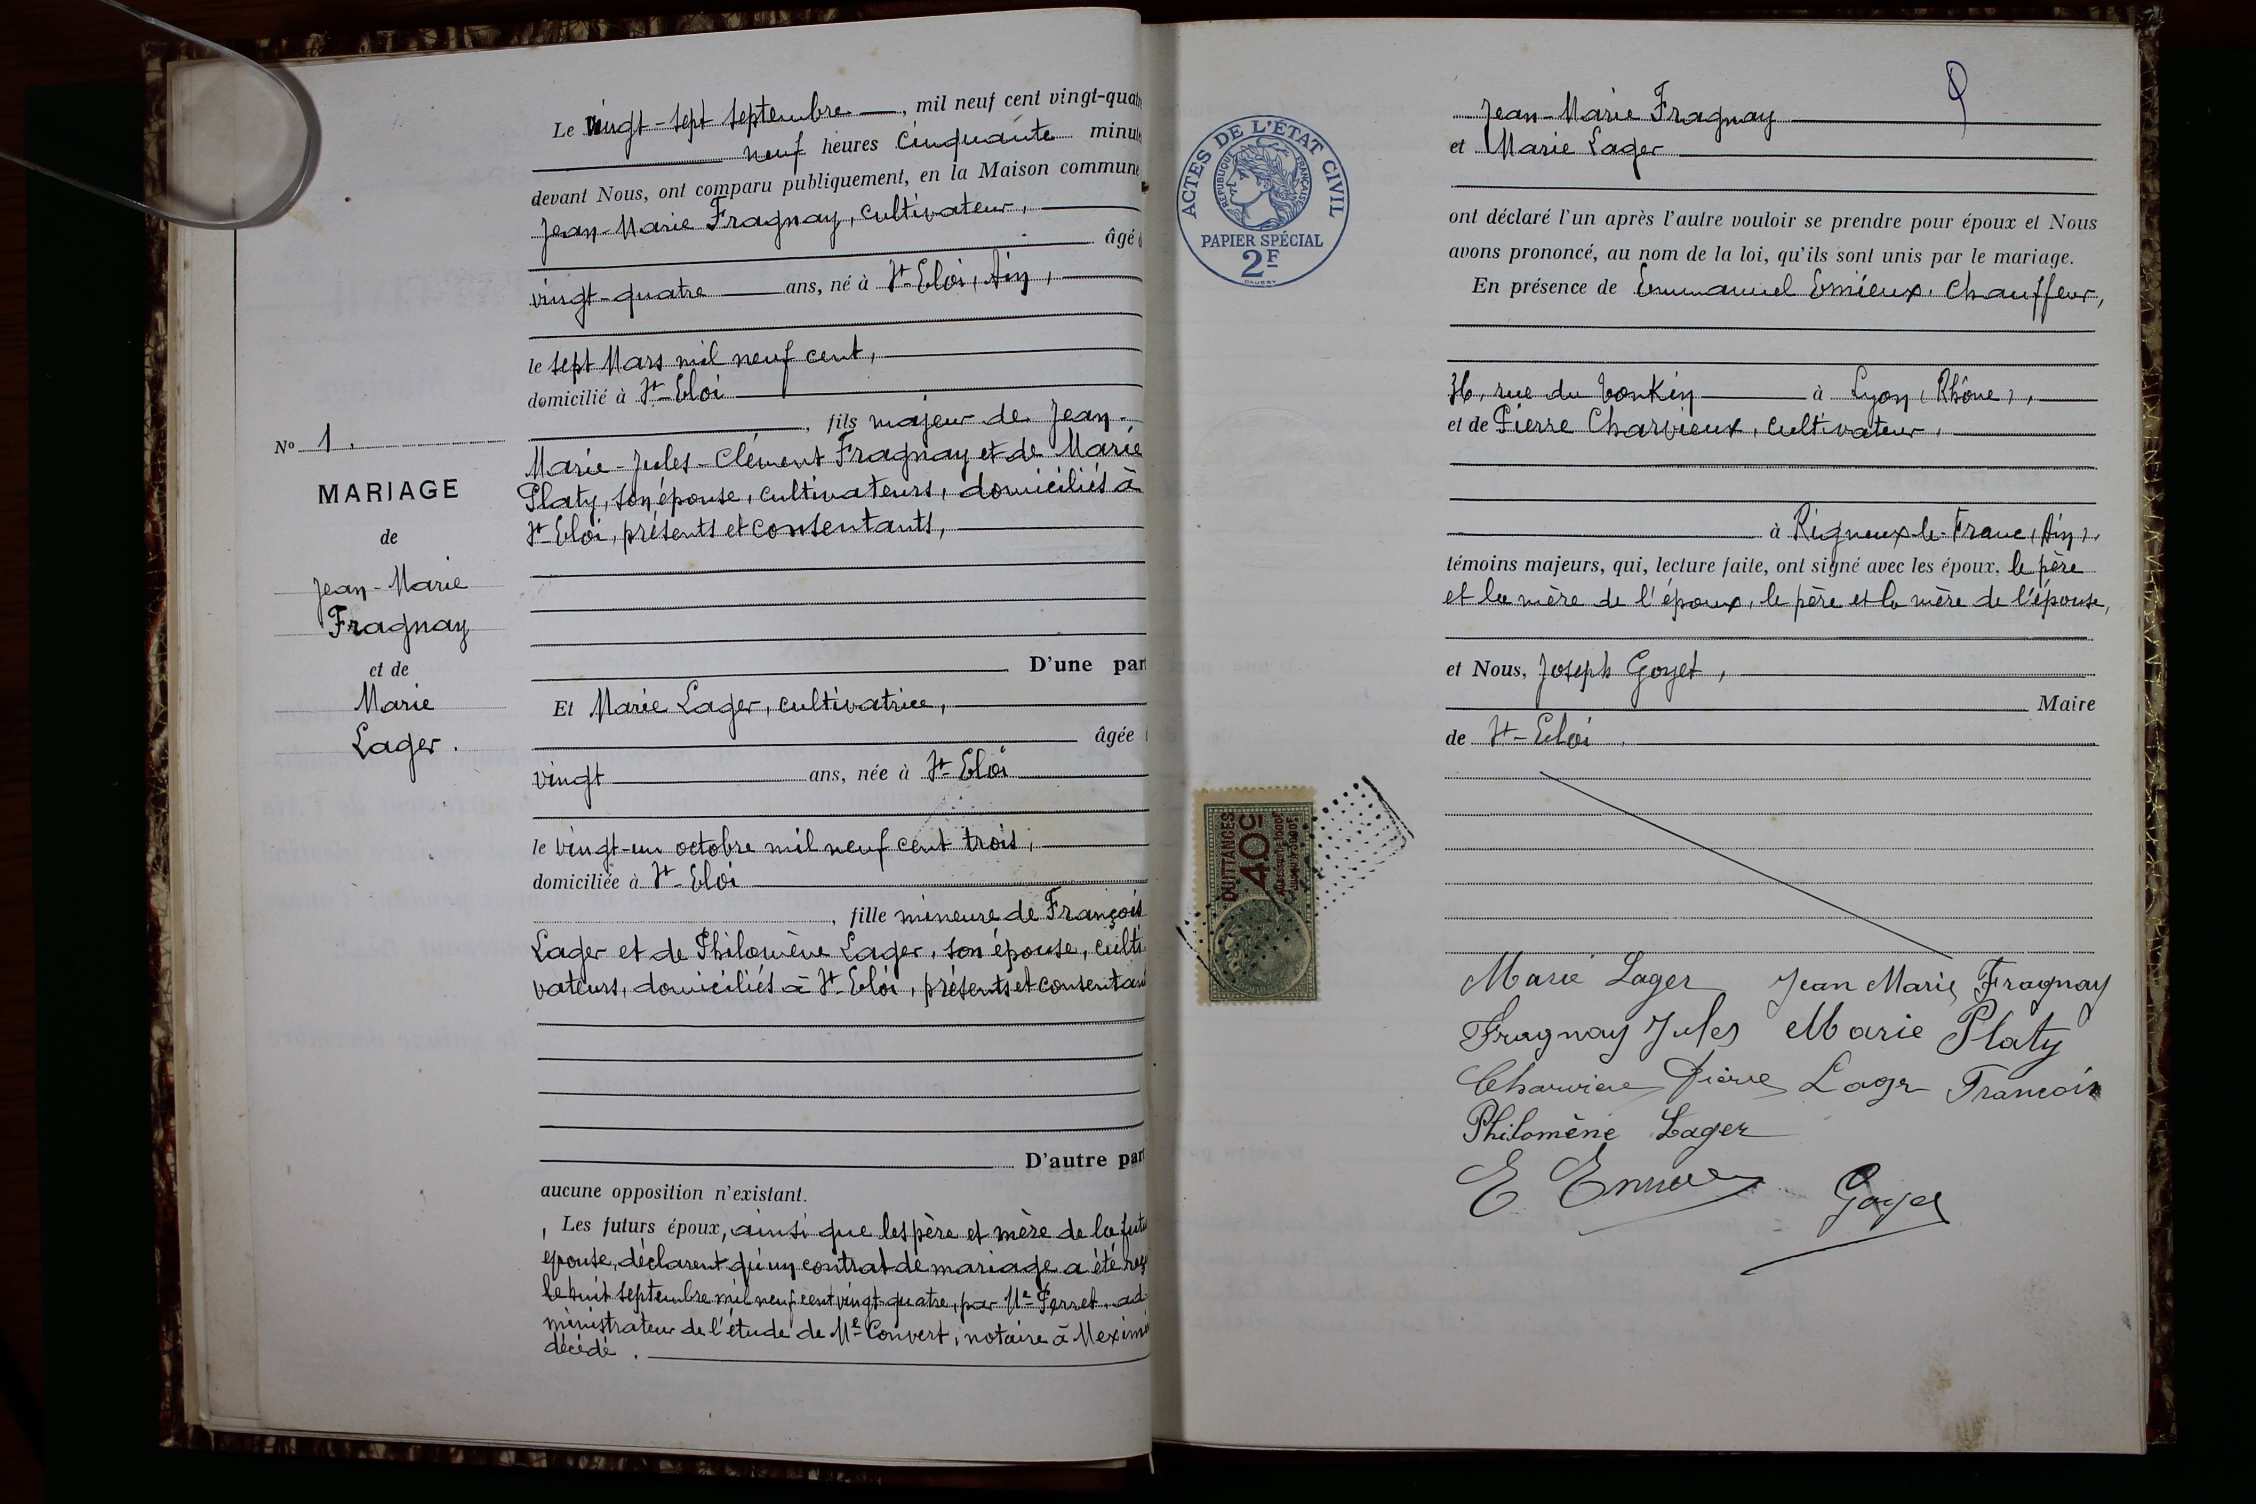 Le vingt-sept septembre, mil neuf cent vingt-quatr
neuf heures cinquante minut
devant Nous, ont comparu publiquement, en la Maison commun
Jean-Marie Fragnay, cultivateur,
âgé d
vingt-quatre ans, né à St-Eloi, Ain,
le sept Mars mil neuf cent,
domicilié à St-Eloi
, fils majeur de Jean-
Marie-Jules-Clément Fragnay et de Marie
Platy, son épouse, cultivateurs, domiciliés à
St-Eloi, présents et consentants,
D'une par
Et Marie Lager, cultivatrice,
âgée
vingt ans, née à St-Eloi
le vingt-un octobre mil neuf cent trois,
domiciliée à St-Eloi
, fille mineure de François
Lager et de Philomène Lager, son épouse, culti
vateurs, domiciliés à St-Eloi, présents et consentan
D'autre part
aucune opposition n'existant.
Les futurs époux, ainsi que les père et mère de la futu
épouse, déclarent qu'un contrat de mariage a été reç
le huit septembre mil neuf cent vingt-quatre, par Me Perret, ad-
ministrateur de l'étude de Me Convert, notaire à Meximi
décédé.
No 1.
MARIAGE
de
Jean-Marie
Fragnay
et de
Marie
Lager.
ACTES DE L'ÉTAT CIVIL
RÉPUBLIQUE FRANÇAISE
PAPIER SPÉCIAL
2F
QUITTANCES
40c
Jean-Marie Fragnay
et Marie Lager
ont déclaré l'un après l'autre vouloir se prendre pour époux et Nous
avons prononcé, au nom de la loi, qu'ils sont unis par le mariage.
En présence de Emmanuel Emieux, chauffeur,
36, rue du Tonkin à Lyon (Rhône),
et de Pierre Charvieux, cultivateur,
à Rigneux-le-Franc (Ain),
témoins majeurs, qui, lecture faite, ont signé avec les époux, le père
et la mère de l'époux, le père et la mère de l'épouse,
et Nous, Joseph Goyet,
Maire
de St-Eloi
Marie Lager Jean Marie Fragnay
Fragnay Jules Marie Platy
Pierre Lager
Philomène Lager
E
Goyet